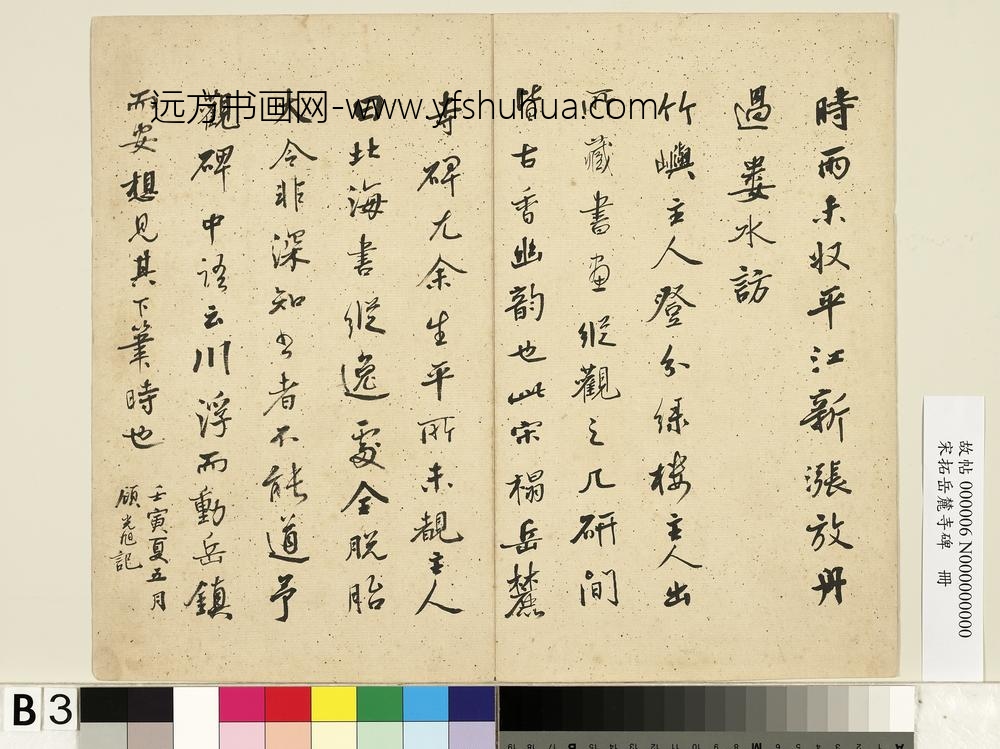 時雨未收平江新漲放舟
過婁水訪
竹嶼主人登分綠樓主人出
所藏書畫縱觀之几研間
皆古香幽韵也此宋榻岳麓
寺碑尤余生平所未覩主人
曰北海書縱逸處全脱胎
大令非深知書者不能道予
觀碑中語云川浮而動岳鎮
而安想見其下筆時也
壬寅夏五月
顧光旭記
远方书画网-www.yfshuhua.com
故帖 000006 N000000000
宋拓岳麓寺碑 冊
B 3